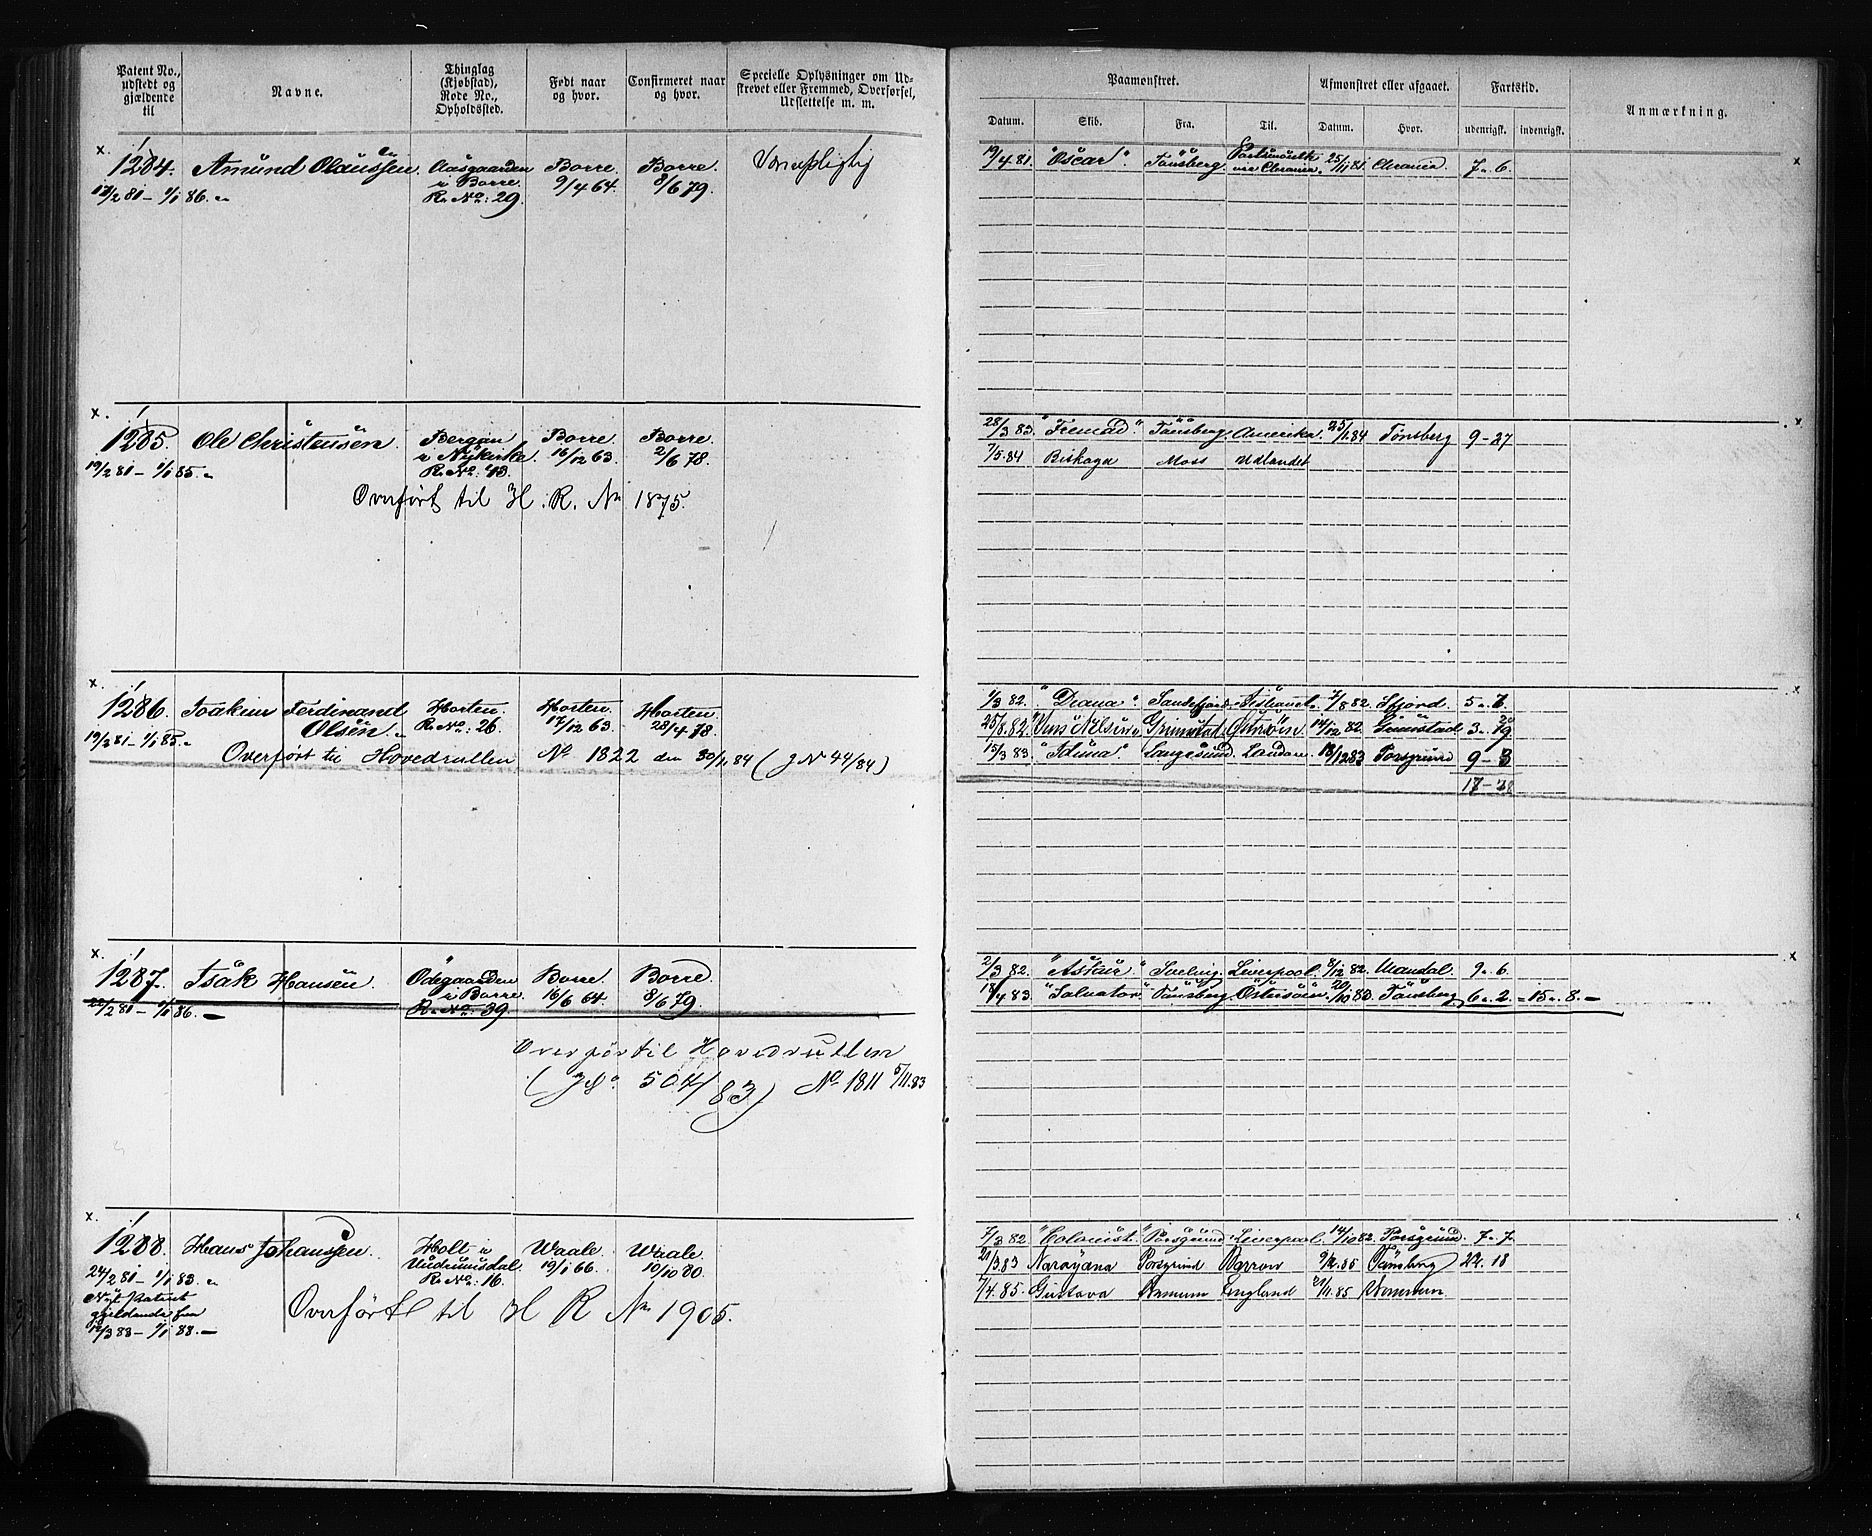 Patent No., udstedt og gjældende til
Navne.
Thinglag (Kjøbstad), Rode No., Opholdssted.
Født naar og hvor.
Confirmeret naar og hvor.
Specielle Oplysninger om Udskrevet eller Fremmed, Overførsel, Udslettelse m. m.
Paamønstret.
Afmønstret eller afgaaet.
Fartstid.
Anmærkning.
Datum. Skib. Fra. Til. Datum. Hvor. udenrigsk. indenrigsk.
x. 1284. Amund Olaussen. Aasgaarden Borre. Borre. Værnepligtig
17/2 81 – 1/1 86. i Borre. 9/4 64. 8/6 79.
R. No: 29.
19/4 81. "Oscar". Tønsberg. 25/11 81. 7. 6. x
x. 1285. Ole Christensen. Bergan Borre. Borre.
19/2 81 – 1/1 85. i Nykirke 16/12 63. 2/6 78.
R. No: 43.
Overført til H. R. No 1875.
28/3 83. Tønsberg. Amerika. 25/1 84 Tønsberg 9 – 27 x
7/5 84 Biskaya Moss Udlandet
x. 1286. Joakim Ferdinand Horten. Horten. Horten.
19/2 81 – 1/1 85. Olsen. R. No: 26. 17/12 63. 28/4 78.
Overført til Hovedrullen No 1822 den 30/1 84 (J No 44/84)
1/3 82. "Diana" Sandefjord. 7/8 82. Sfjord 5. 6. x
25/8 82. Grimstad. Østersøen. 14/12 82. Grimstad 3. 19
15/3 83 Langesund. London. 18/12 83 Porsgrund 9 – 3
17 – 28
x. 1287. Isak Hansen. Ødegaarden Borre. Borre.
22/2 81 – 1/1 86. i Borre. 16/6 64. 8/6 79.
R. No. 39
Overført til Hovedrullen
(J No 504/83) No 1811 5/11 83
2/3 82. Liverpool. 8/12 82. Mandal. 9. 6. x
18/4 83. "Salvator". Tønsberg. Østersøen. 20/10 83. Tønsberg. 6. 2. = 15. 8. –
x. 1288. Hans Johanssen. Holt i Waale. Waale.
24/2 81 – 1/1 83. Undrumsdal. 19/1 66. 10/10 80.
R. No. 16.
Nyt Patent
gjældende fra
12/3 83 – 1/1 88. –
Overført til H R No 1905.
7/3 82 "Colonist." Porsgrund Liverpool. 14/10 82. Porsgrund. 7. 7.
21/3 83 Narayana Porsgrund Barrow Tønsberg 22. 18
7/4 85. Gustava England 21/11 85